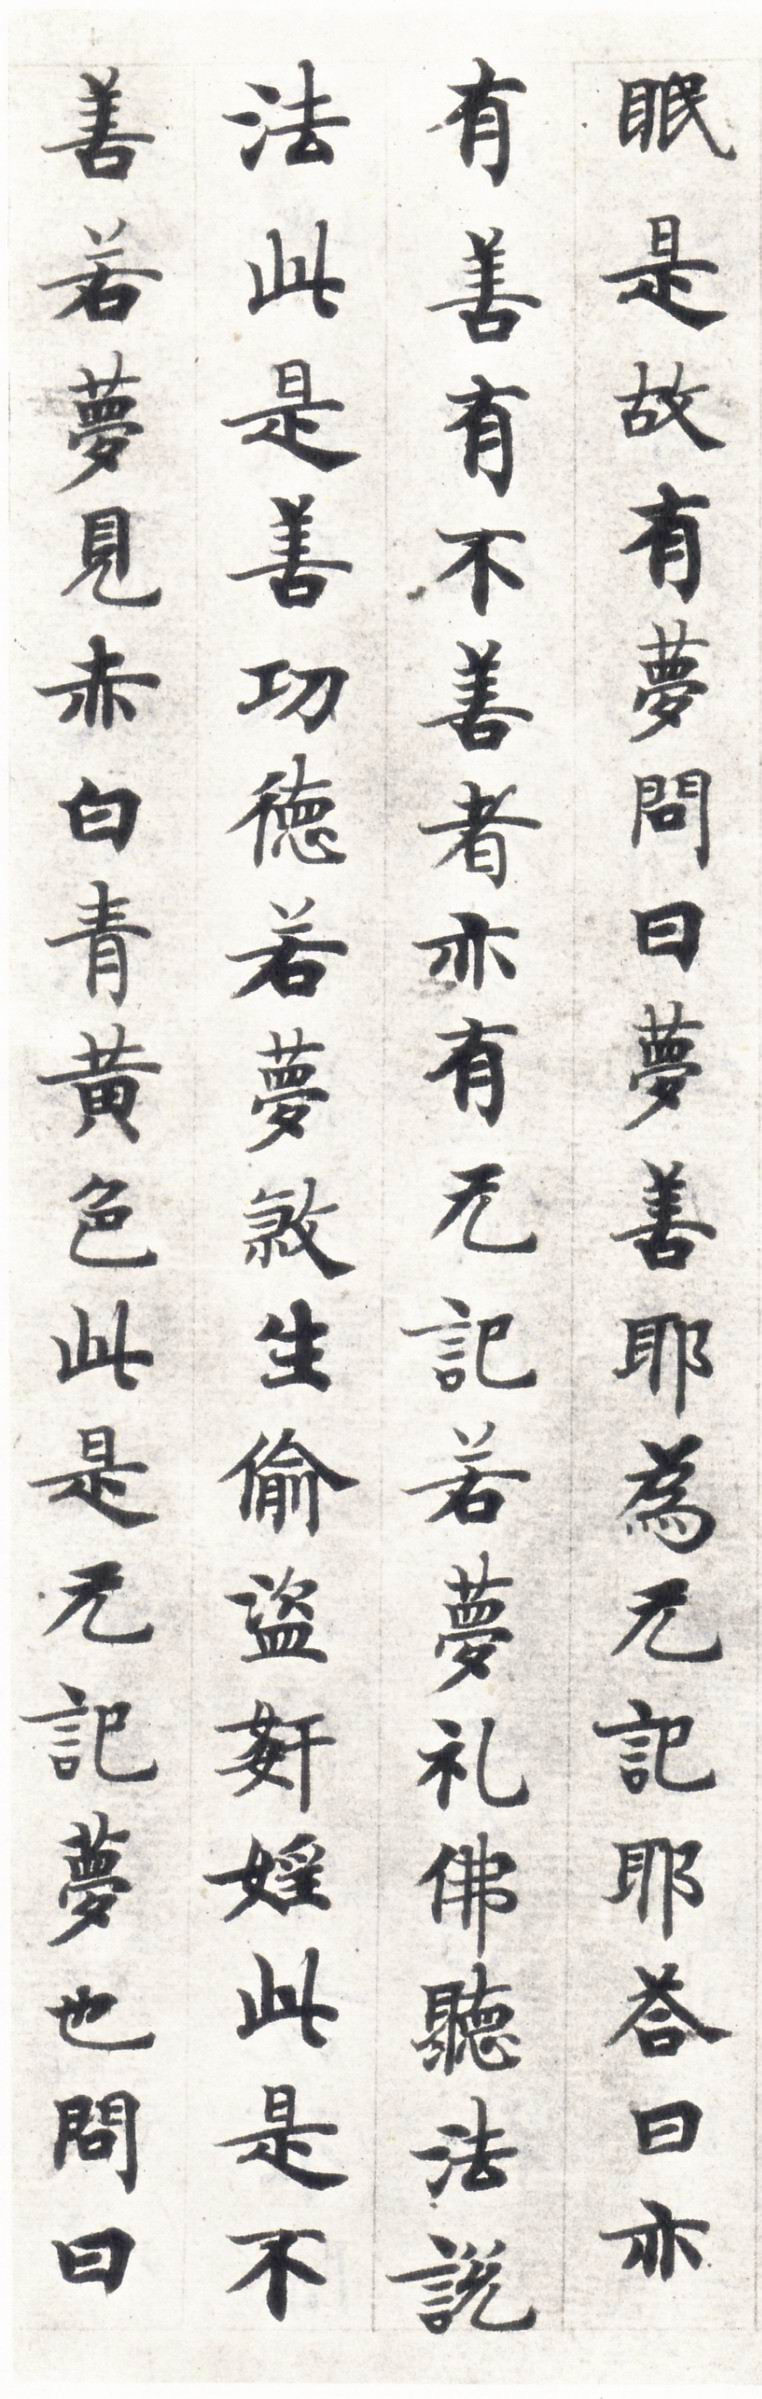 眠是故有夢問曰夢善耶為无記耶荅曰亦
有善有不善者亦有无記若夢礼佛聽法說
法此是善功德若夢煞生偷盜姧婬此是不
善若夢見赤白青黃色此是无記夢也問曰